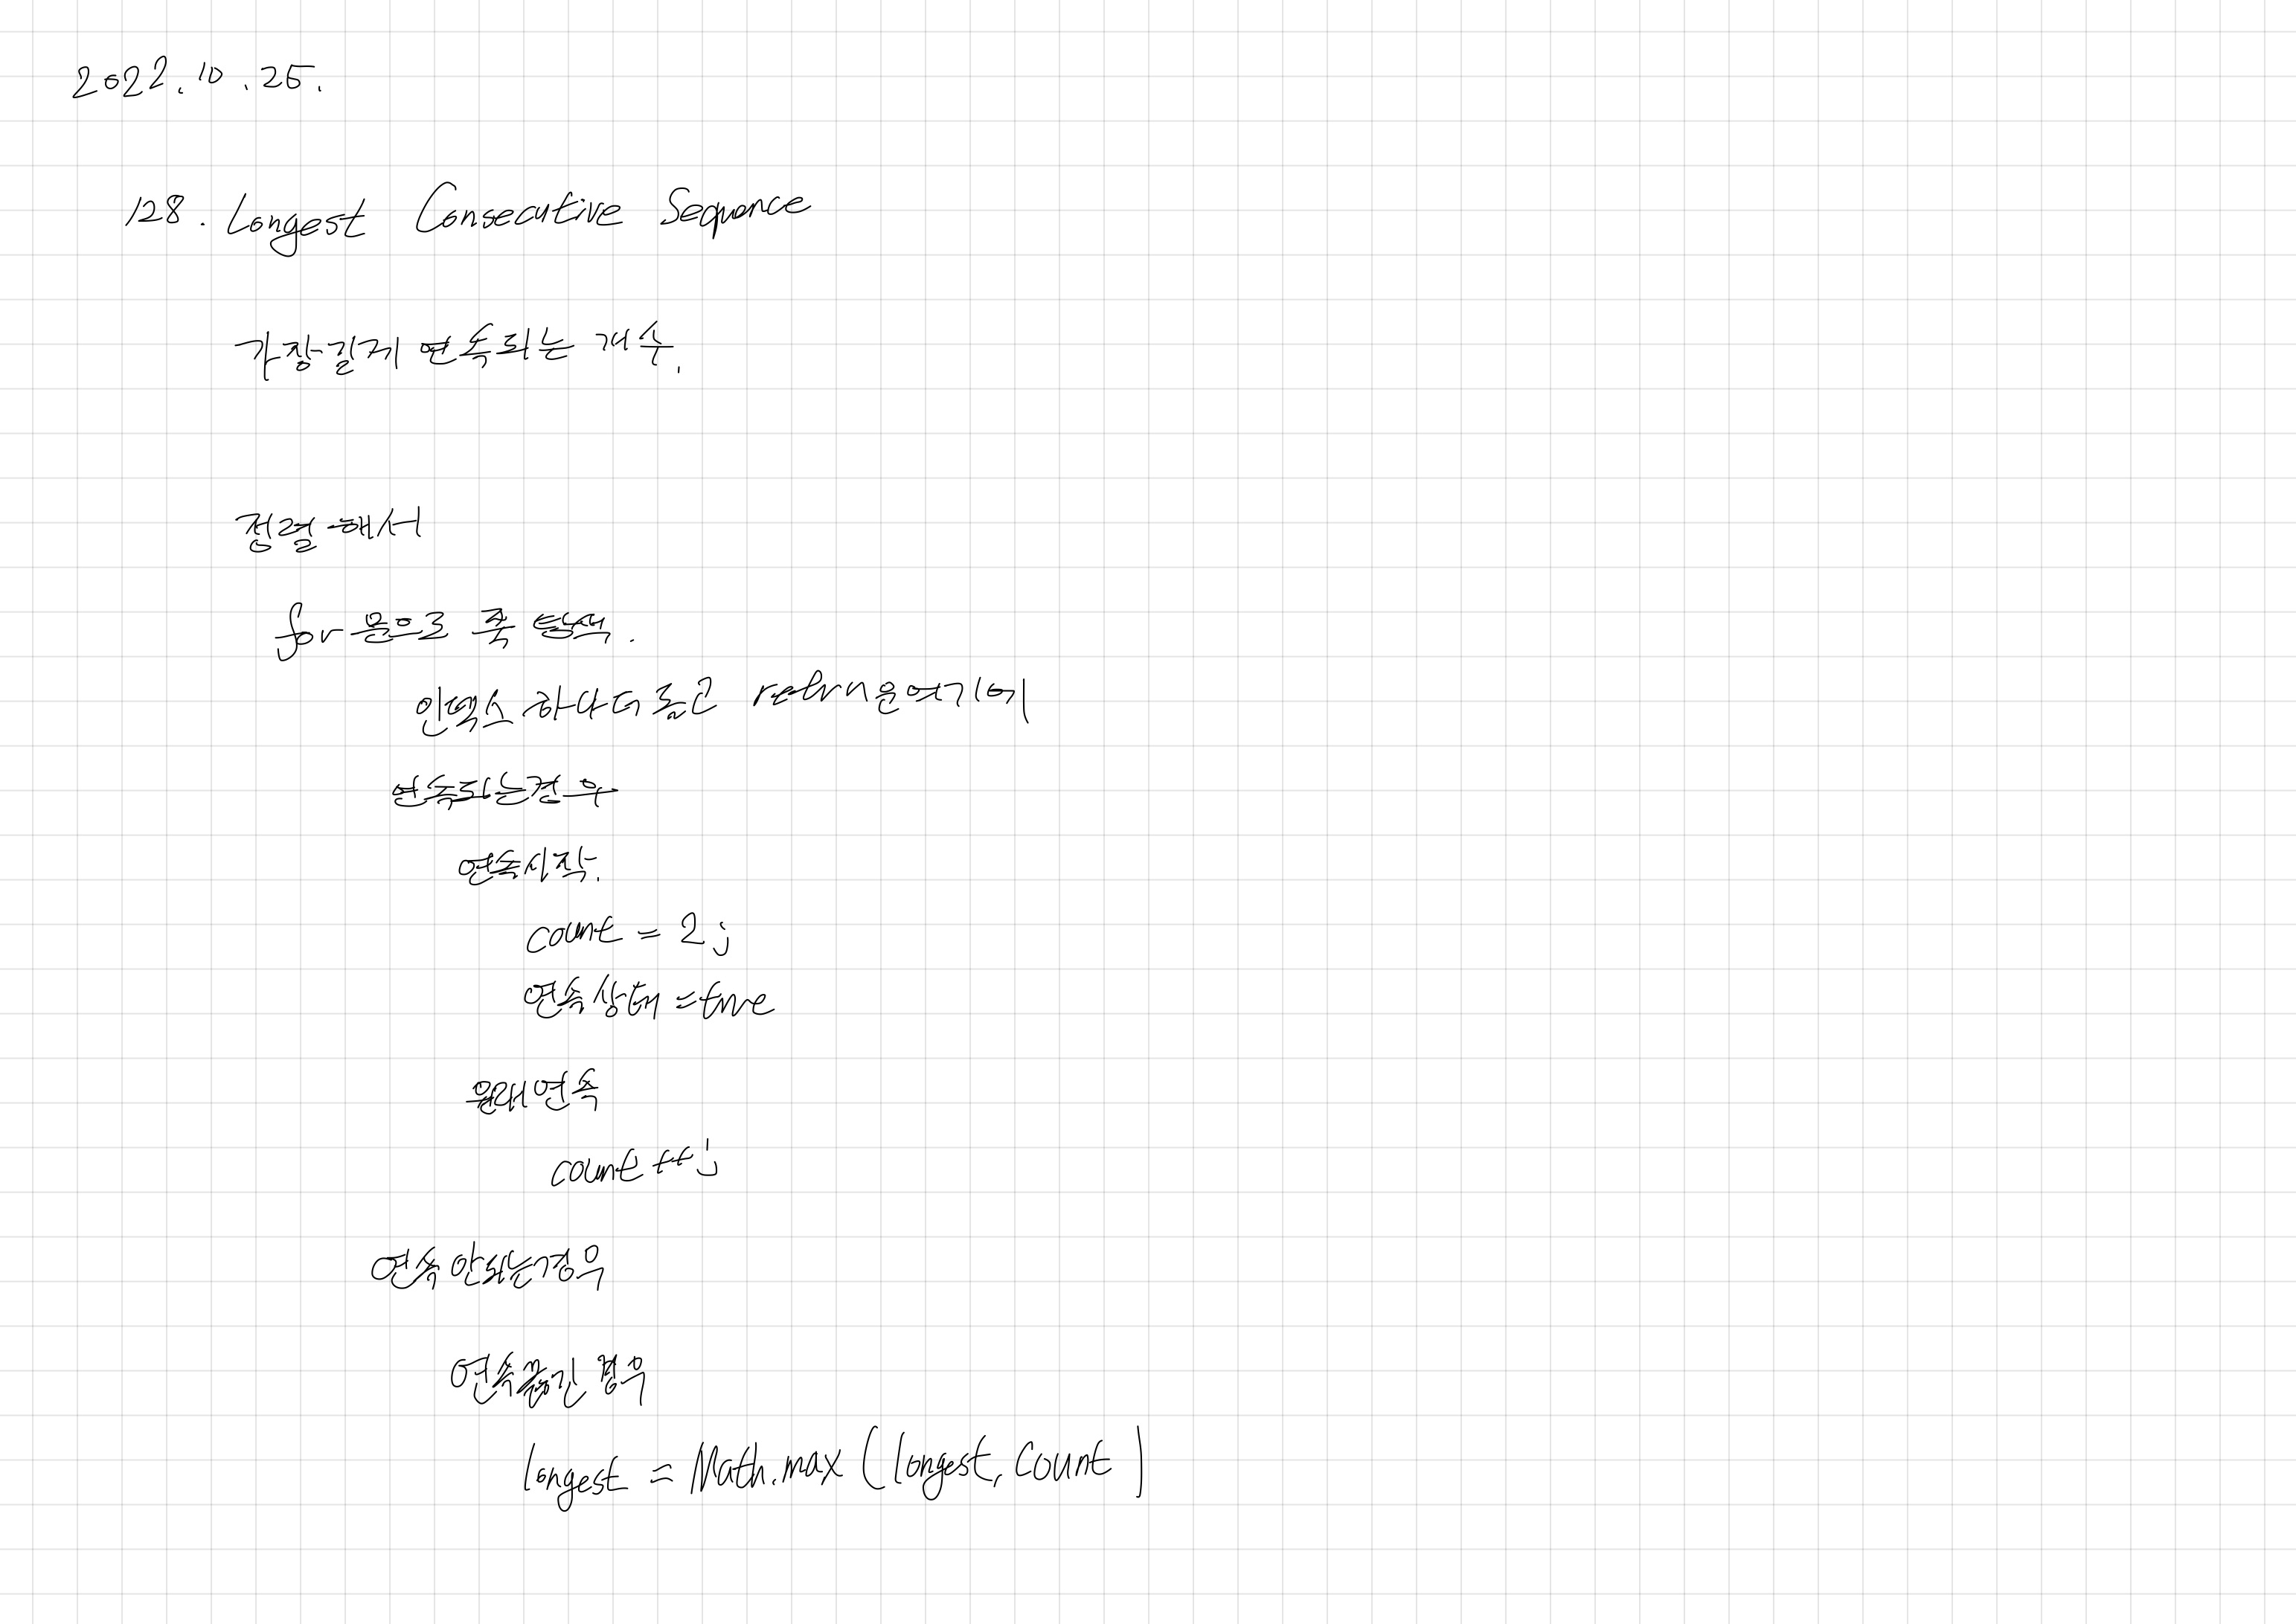 2022.10.25.
128. Longest Consecutive Sequence
가장길게 연속되는 개수.
정렬해서
for문으로 쭉 탐색.
인덱스 하나더 돌고 return은여기에
연속되는경우
연속시작.
count = 2;
연속상태 = true
원래연속
count++;
연속안되는경우
연속끊긴경우
longest = Math.max(longest, count)